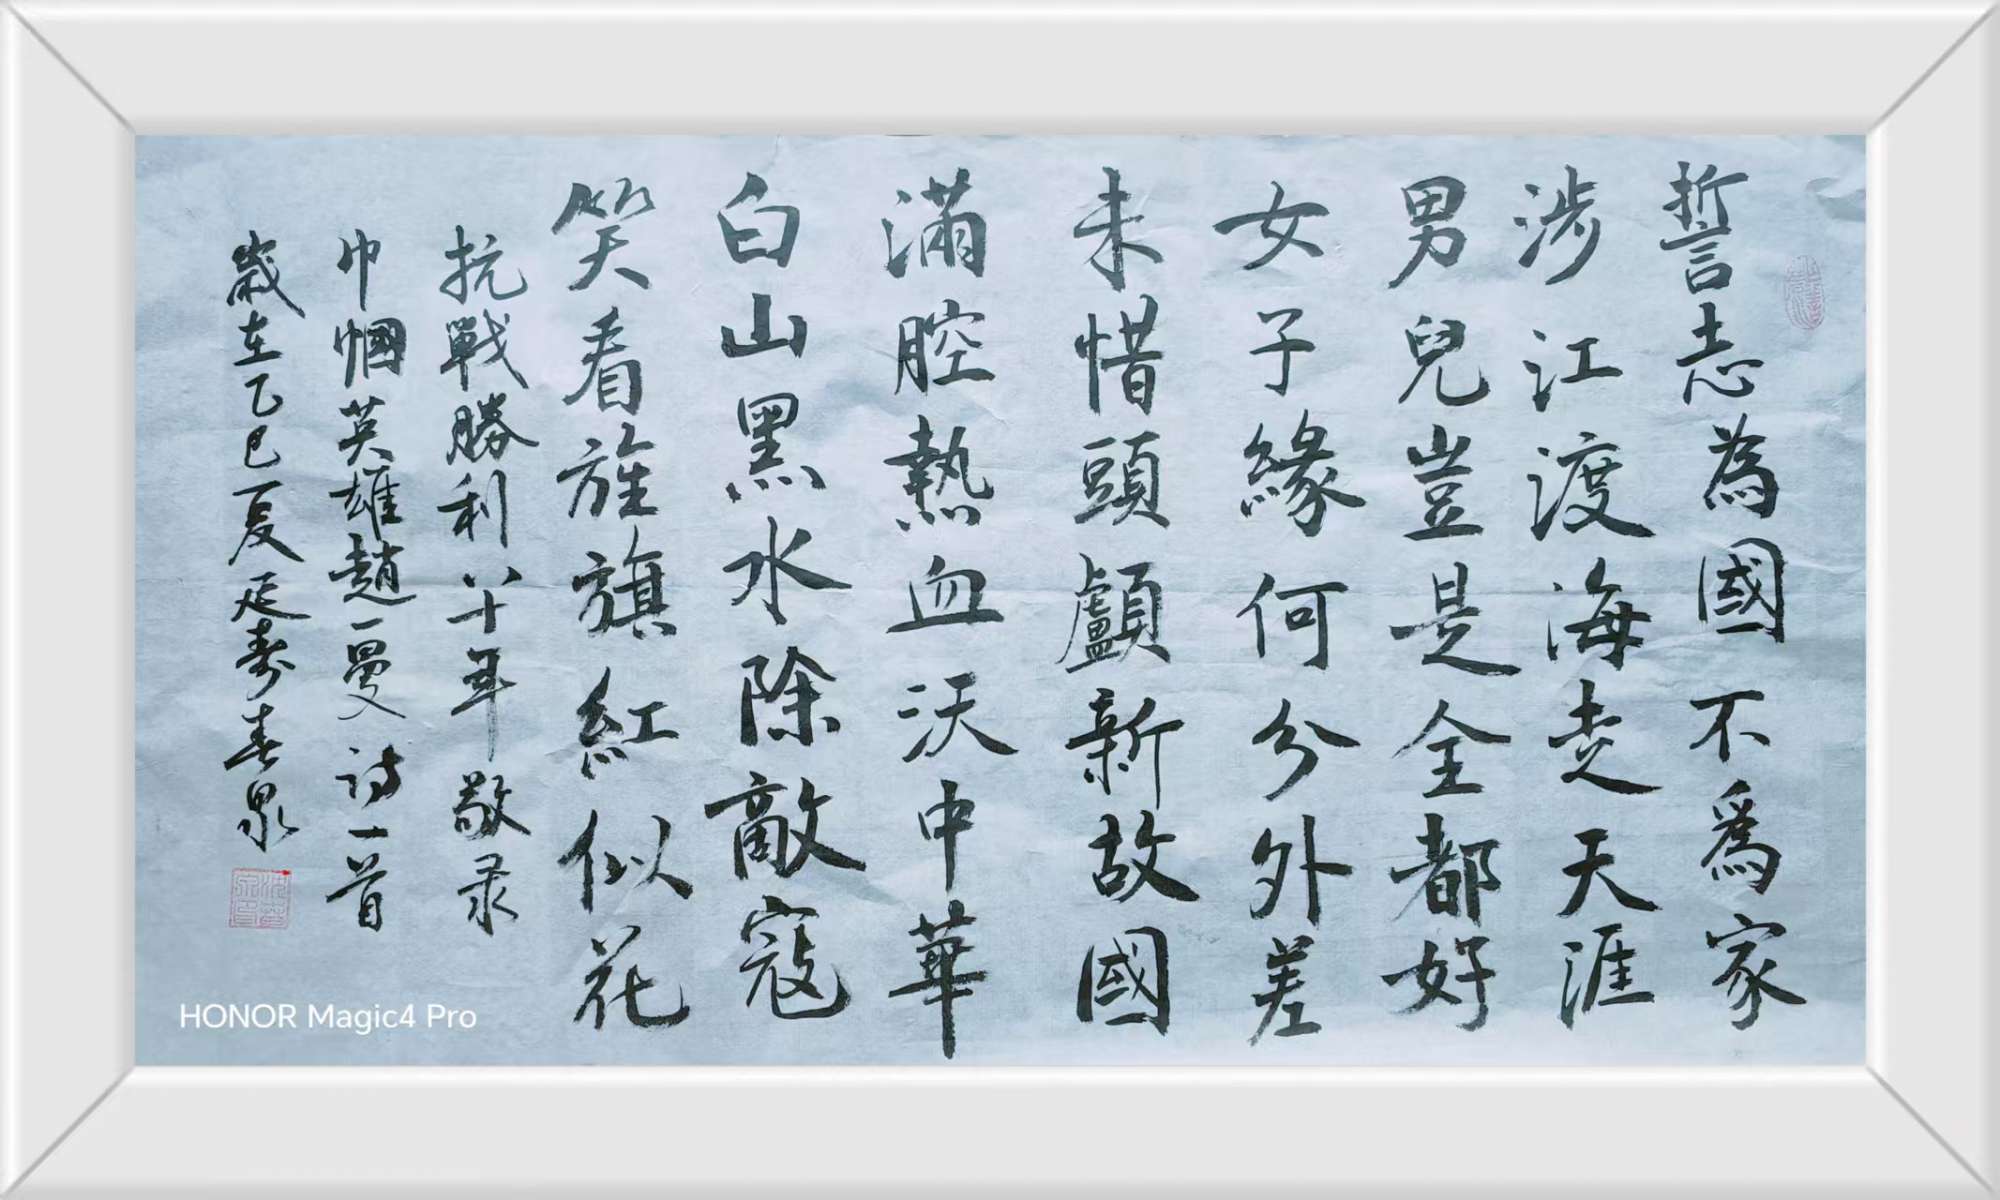 誓志為國不爲家
涉江渡海走天涯
男兒豈是全都好
女子緣何分外差
未惜頭顱新故國
滿腔熱血沃中華
白山黑水除敵寇
笑看旌旗紅似花
抗戰勝利八十年敬录
巾幗英雄趙一曼诗一首
歲在乙巳夏延壽春泉
HONOR Magic4 Pro